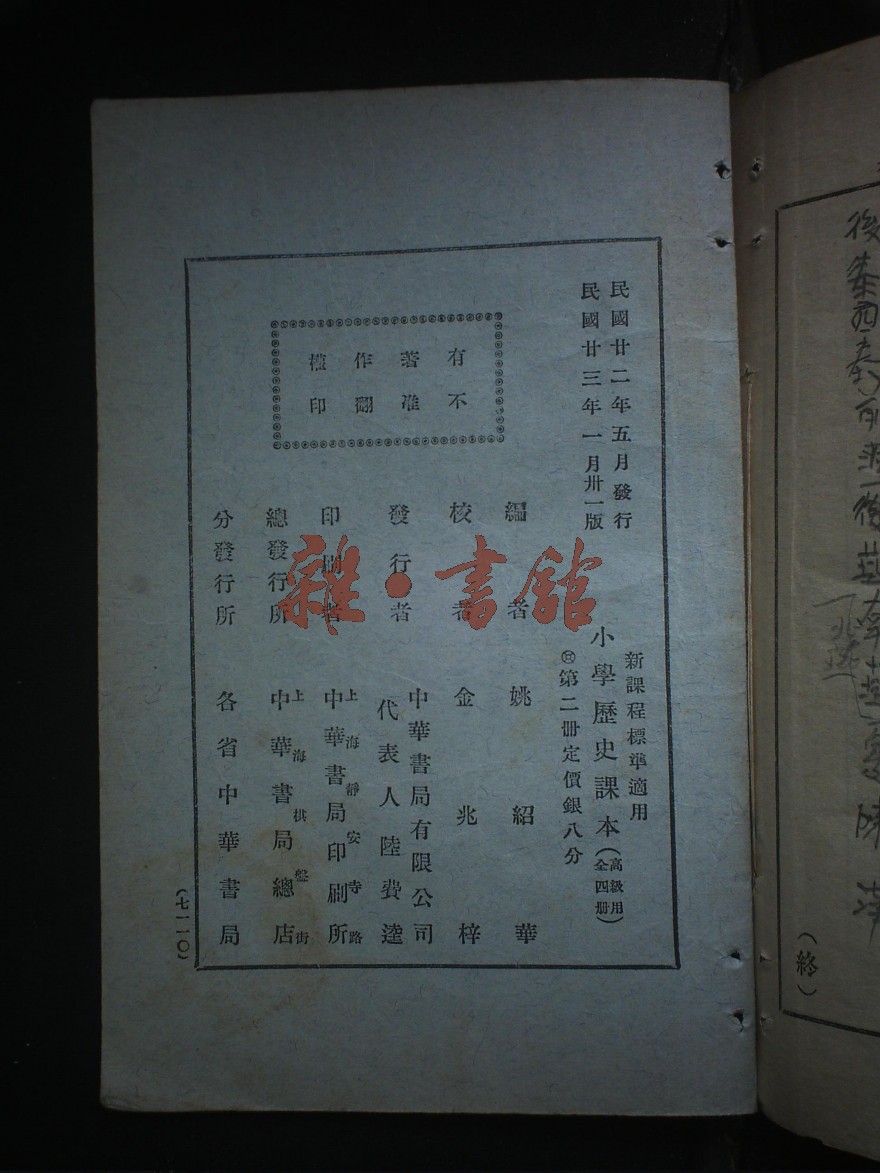 民國廿二年五月發行
民國廿三年一月卅一版
有著作權
不准翻印
新課程標準適用
小學歷史課本(高級用全四册)
第二册定價銀八分
編者 姚紹華
校者 金兆梓
發行者 中華書局有限公司
代表人陸費逵
印刷者 上海靜安寺路
中華書局印刷所
總發行所 上海棋盤街
中華書局總店
分發行所 各省中華書局
(七一一〇)
雜·書館
(終)